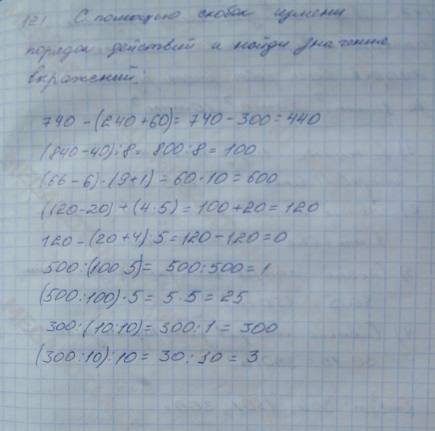 121 С помощью скобок измени
порядок действий и найди значение
выражений:
740 - (240 + 60) = 740 - 300 = 440
(840 - 40) : 8 = 800 : 8 = 100
(66 - 6) · (9 + 1) = 60 · 10 = 600
(120 - 20) + (4 · 5) = 100 + 20 = 120
120 - (20 + 4) · 5 = 120 - 120 = 0
500 : (100 · 5) = 500 : 500 = 1
(500 : 100) · 5 = 5 · 5 = 25
300 : (10 : 10) = 300 : 1 = 300
(300 : 10) : 10 = 30 : 10 = 3